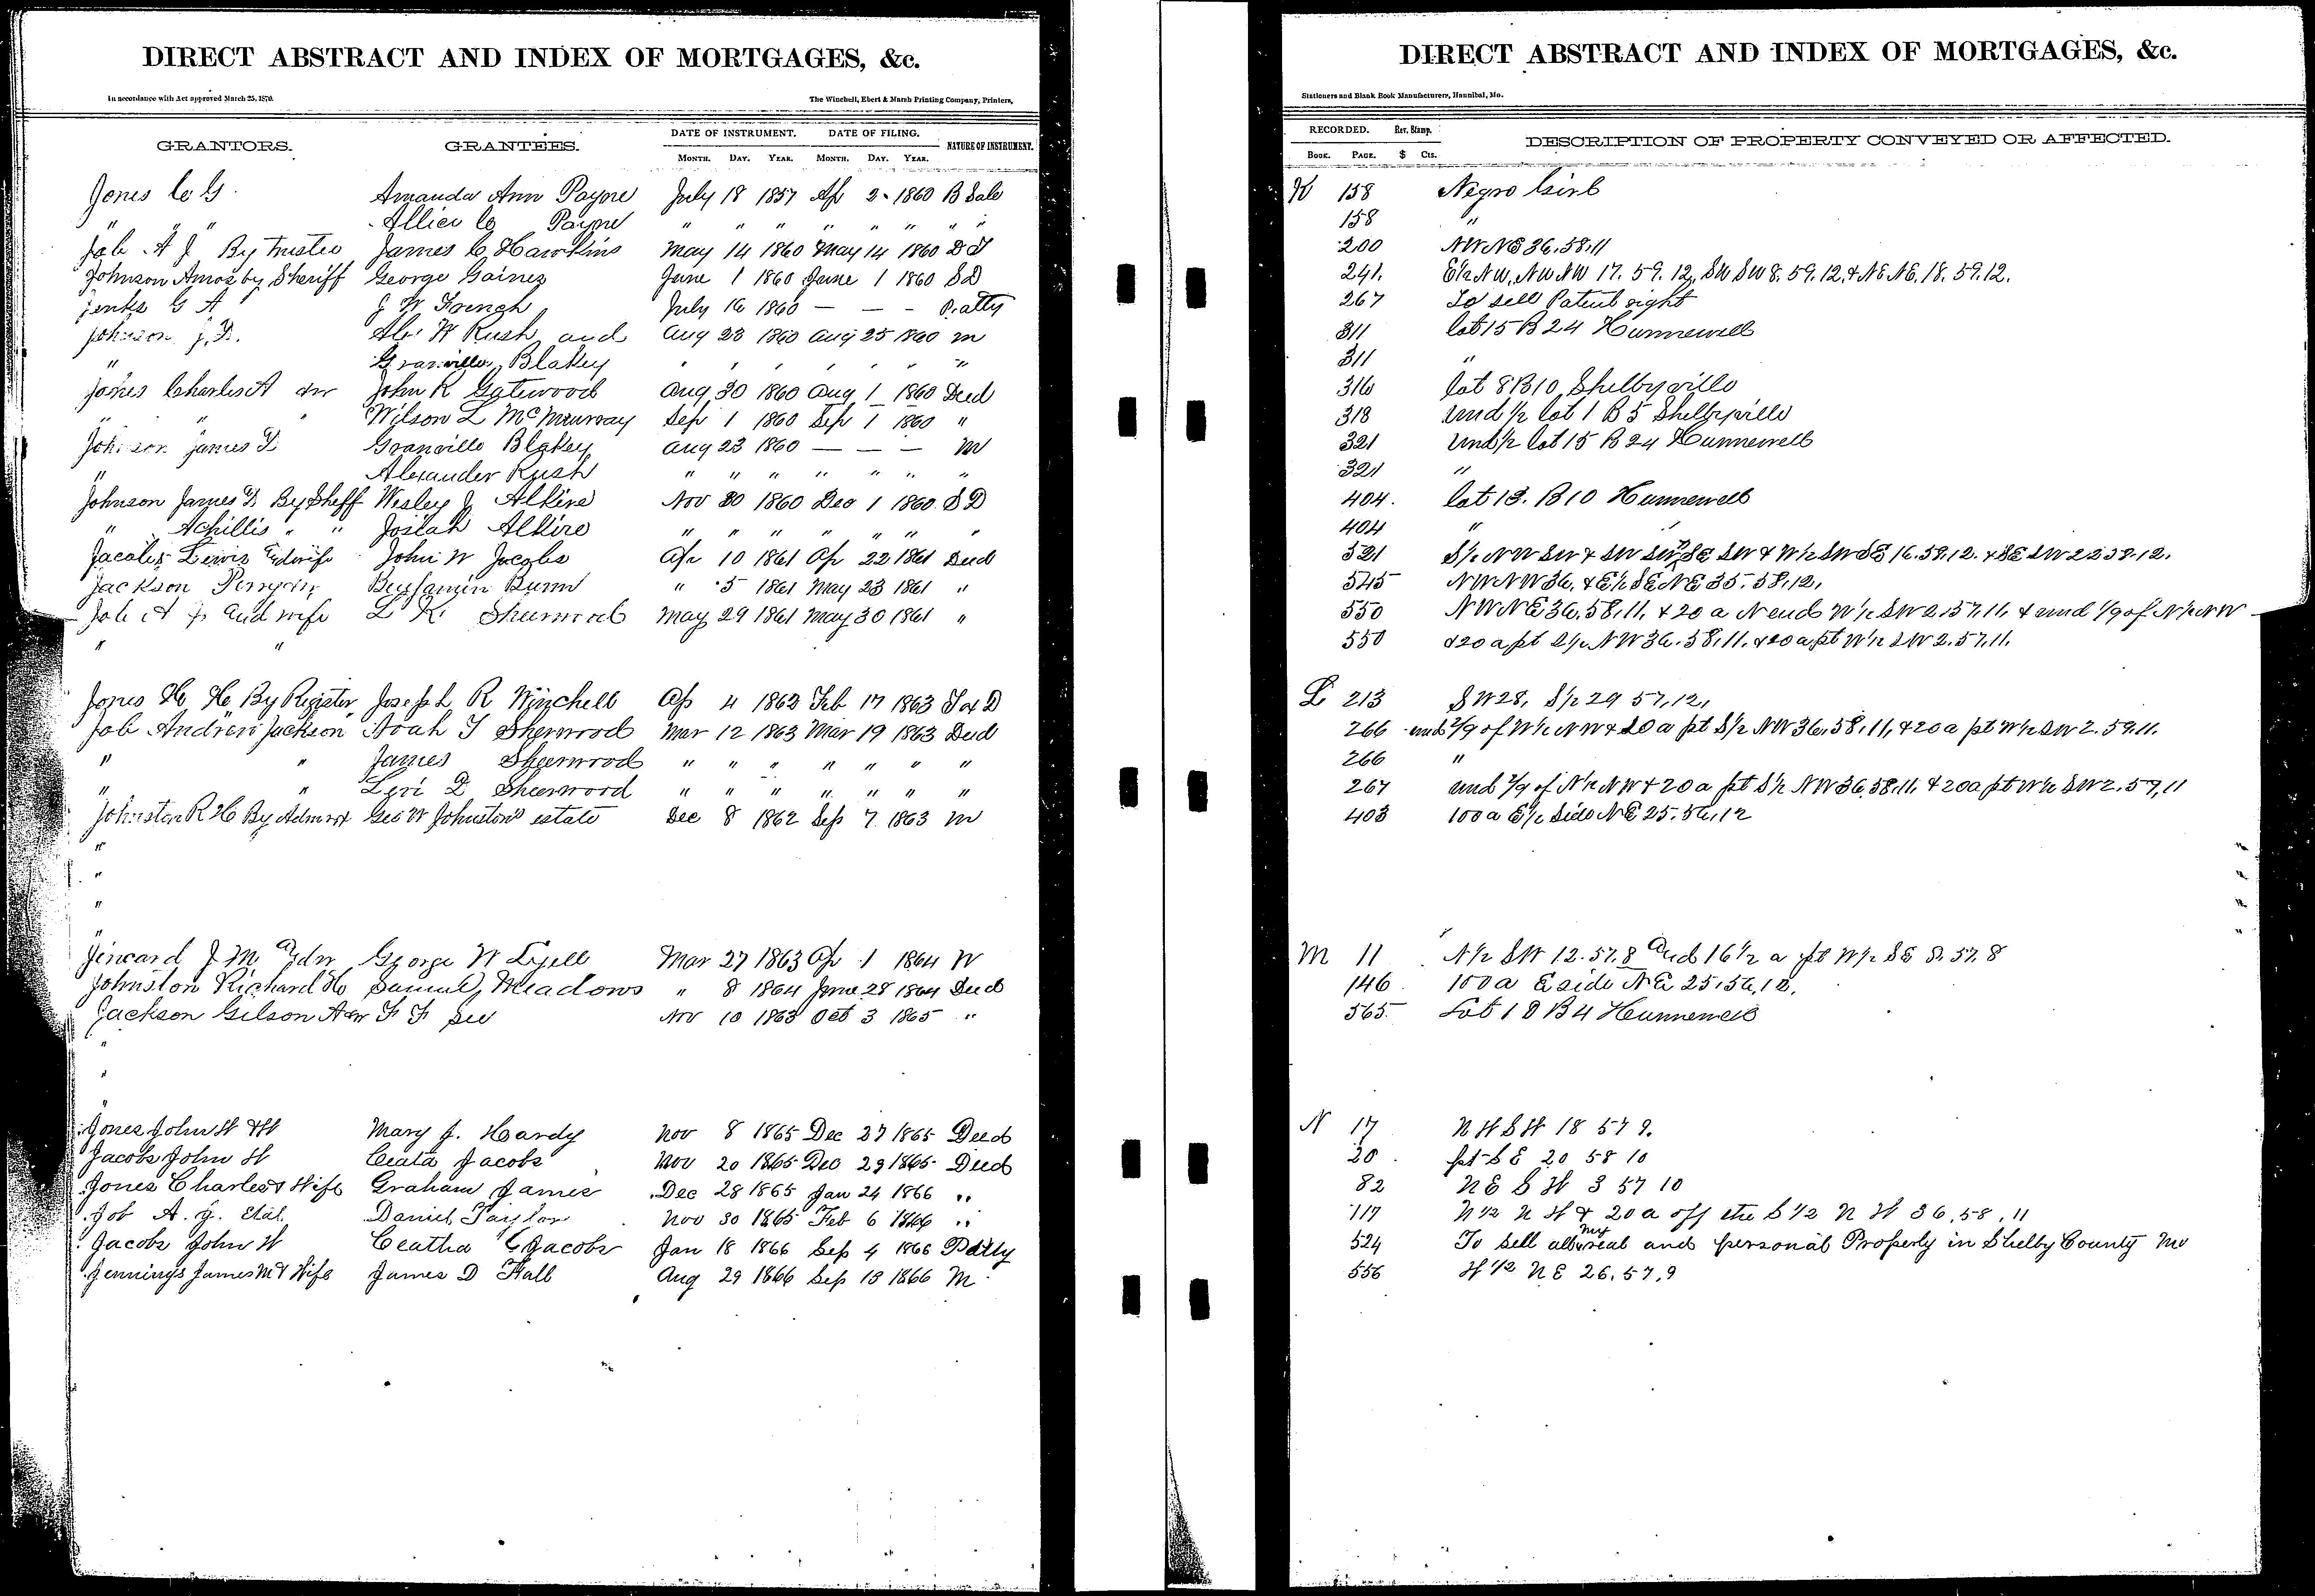 DIRECT ABSTRACT AND INDEX OF MORTGAGES, &c.
In accordance with Act approved March 25, 1870.
The Winchell, Ebert & Marsh Printing Company, Printers,
GRANTORS. GRANTEES. DATE OF INSTRUMENT. DATE OF FILING. NATURE OF INSTRUMENT.
MONTH. DAY. YEAR. MONTH. DAY. YEAR.
Jones C G Amanda Ann Payne July 18 1857 Ap 2 1860 B Sale
" " Allice C Payne " " " " " " "
Job A J By Trustee James C Hawkins May 14 1860 May 14 1860 D T
Johnson Amos by Sheriff George Gaines June 1 1860 June 1 1860 S D
Jenks G A J W French July 16 1860 — — — P. atty
Johnson J. D. Alex W Rush and Aug 23 1860 Aug 25 1860 M
" Granville Blakey " " " " " " "
Jones Charles A &w John K Gatewood Aug 30 1860 Aug 1 1860 Deed
" " " Wilson L McMurray Sep 1 1860 Sep 1 1860 "
Johnson James D Granville Blakey Aug 23 1860 — — — M
" Alexander Rush " " " " " " "
Johnson James D By Sheff Wesley J Alkire Nov 30 1860 Dec 1 1860 S D
" Achillis " " Josiah Alkire " " " " " "
Jacobs Lewis & wife John W Jacobs Ap 10 1861 Ap 22 1861 Deed
Jackson Benjamin Bunn " 5 1861 May 23 1861 "
Job A J and wife L K Sherwood May 29 1861 May 30 1861 "
" "
Jones H H By Register Joseph R Winchell Ap 4 1863 Feb 17 1863 Tax D
Job Andrew Jackson Noah T Sherwood Mar 12 1863 Mar 19 1863 Deed
" " James Sherwood " " " " " " "
" " Levi D Sherwood " " " " " " "
Johnston R H By Admsx Geo W Johnston's estate Dec 8 1862 Sep 7 1863 M
"
"
"
"
J M &w George W Lyell Mar 27 1863 Ap 1 1864 W
Johnston Richard H Samuel Meadows " 8 1864 June 28 1864 Deed
Jackson Gilson A &w F F See Nov 10 1863 Oct 3 1865 "
"
"
"
Jones John W & W Mary J. Hardy Nov 8 1865 Dec 27 1865 Deed
Jacobs John W Ceata Jacobs Nov 20 1865 Dec 29 1865 Deed
Jones Charles & Wife Graham James Dec 28 1865 Jan 24 1866 "
Job A. J. et al. Daniel Taylor Nov 30 1865 Feb 6 1866 "
Jacobs John W Ceatha C Jacobs Jan 18 1866 Sep 4 1866 P Atty
Jennings James M & Wife James D Hall Aug 29 1866 Sep 15 1866 M
DIRECT ABSTRACT AND INDEX OF MORTGAGES, &c.
Stationers and Blank Book Manufacturers, Hannibal, Mo.
RECORDED. Rev. Stamp. DESCRIPTION OF PROPERTY CONVEYED OR AFFECTED.
BOOK. PAGE. $ Cts.
K 158 Negro Girl
158 "
200 NW NE 36.58.11
241. E½ NW, NW NW 17. 59. 12, SW SW 8. 59. 12, & NE NE. 18. 59. 12.
267 To sell Patent right
311 lot 15 B 24 Hunnewell
311 "
316 lot 8 B 10 Shelbyville
318 und ½ lot 1 B 5 Shelbyville
321 und ½ lot 15 B 24 Hunnewell
321 "
404. lot 13. B 10 Hunnewell
404 " "
521 S½ NW SW & SW SW, SE SW & W½ SW SE 16.58.12. & SE SW 22 58.12.
545 NW NW 36, & E½ SE NE 35. 58, 12,
550 NW NE 36, 58, 11, & 20 a N end W½ SW 2. 57. 11, & und 1/9 of N½ NW
550 & 20 a pt S½ NW 36. 58, 11. & 20 a pt W½ SW 2. 57. 11.
L 213 SW 28, S½ 29 57, 12,
266 und 2/9 of N½ NW & 20 a pt S½ NW 36, 58, 11, & 20 a pt W½ SW 2. 59.11.
266 "
267 und 2/9 of N½ NW & 20 a pt S½ NW 36, 58, 11, & 20 a pt W½ SW 2. 57, 11
403 100 a E½ side NE 25. 56, 12
M 11 N½ SW 12. 57. 8 and 16½ a pt W½ SE 2. 57. 8
146 100 a E side NE 25, 56, 12.
565 Lot 18 B 4 Hunnewell
N 17 N W S W 18 57 9.
20 pt S E 20 58 10
82 N E S W 3 57 10
117 N ½ N W & 20 a off the S ½ N W 36, 58, 11
524 To sell all my real and personal Property in Shelby County Mo
556 W ½ N E 26, 57, 9